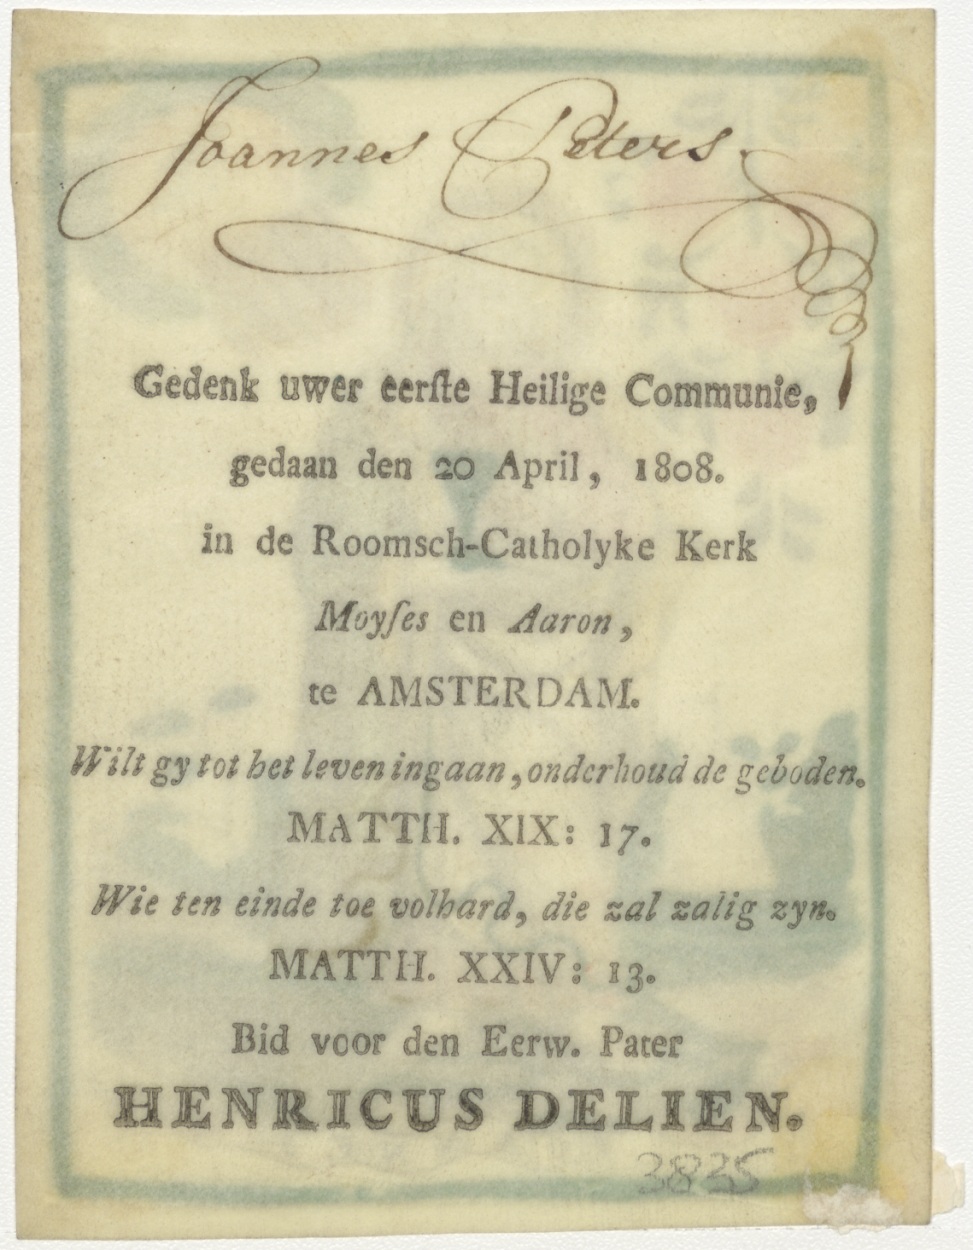 Joannes Peters.
Gedenk uwer eerſte Heilige Communie,
gedaan den 20 April, 1808.
in de Roomsch-Catholyke Kerk
Moyſes en Aaron,
te AMSTERDAM.
Wilt gy tot het leven ingaan, onderhoud de geboden.
MATTH. XIX: 17.
Wie ten einde toe volhard, die zal zalig zyn.
MATTH. XXIV: 13.
Bid voor den Eerw. Pater
HENRICUS DELIEN.
3835